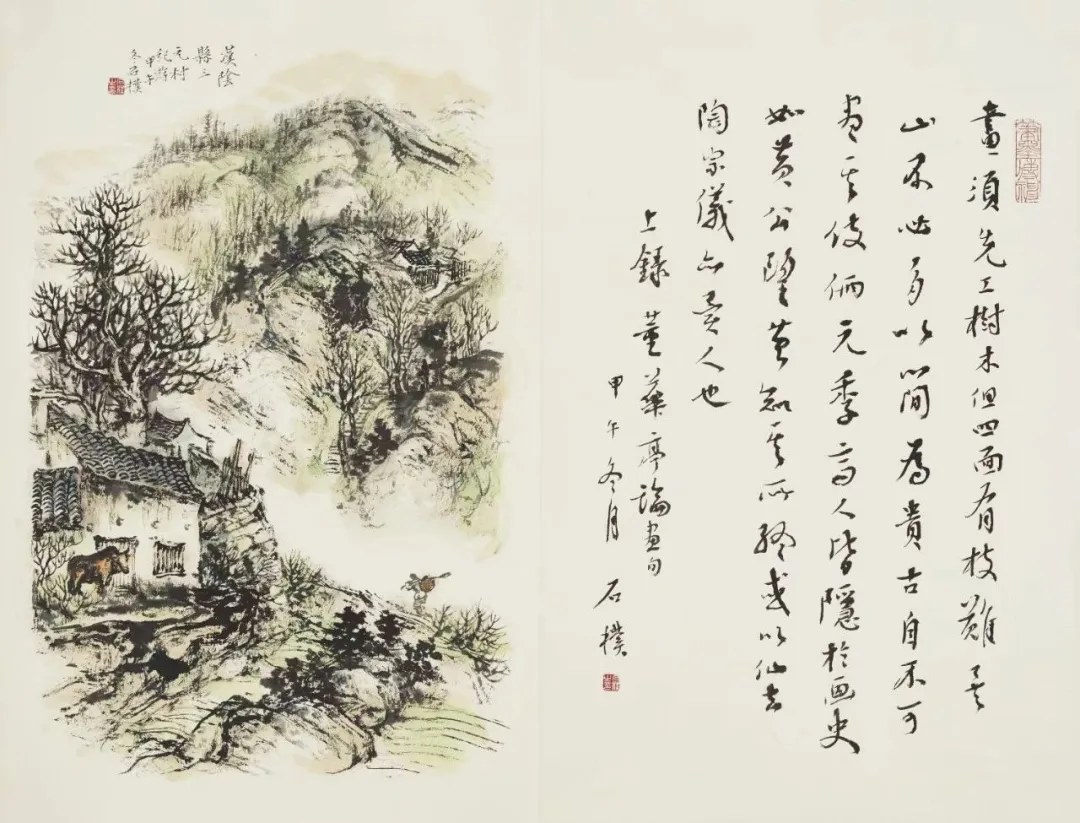 畫須先工樹木但四面有枝難耳
山不必多以簡為貴古自不可
盡其伎倆元季高人皆隱於画史
如黃公望莫知其所終或以仙去
陶宗儀亦異人也
上錄董華亭論畫句
甲午冬月 石樸
漢陰
縣三
元村
紀游
甲午
冬石樸